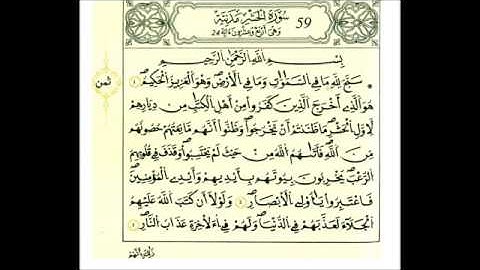 سُورَةُ الْحَشْرِ مَدَنِيَّة 59
وَهِيَ أَرْبَعٌ وَعِشْرُونَ ءَايَة 24
بِسْمِ اللَّهِ الرَّحْمَٰنِ الرَّحِيمِ
ثمن
سَبَّحَ لِلهِ مَا فِي السَّمَٰوَٰتِ وَمَا فِي الْأَرْضِ وَهُوَ الْعَزِيزُ الْحَكِيمُ
هُوَ الَّذِي أَخْرَجَ الَّذِينَ كَفَرُوا مِنْ أَهْلِ الْكِتَٰبِ مِن دِيَٰرِهِمْ
لِأَوَّلِ الْحَشْرِ مَا ظَنَنتُمْ أَنْ يَخْرُجُوا وَظَنُّوا أَنَّهُم مَّانِعَتُهُمْ حُصُونُهُم
مِّنَ اللَّهِ فَأَتَىٰهُمُ اللَّهُ مِنْ حَيْثُ لَمْ يَحْتَسِبُوا وَقَذَفَ فِي قُلُوبِهِمُ
الرُّعْبَ يُخْرِبُونَ بِيُوتَهُم بِأَيْدِيهِمْ وَأَيْدِي الْمُؤْمِنِينَ
فَاعْتَبِرُوا يَٰأُوْلِي الْأَبْصَٰرِ وَلَوْلَا أَن كَتَبَ اللَّهُ عَلَيْهِمُ
الْجَلَاءَ لَعَذَّبَهُمْ فِي الدُّنْيَا وَلَهُمْ فِي الْأَخِرَةِ عَذَابُ النَّارِ